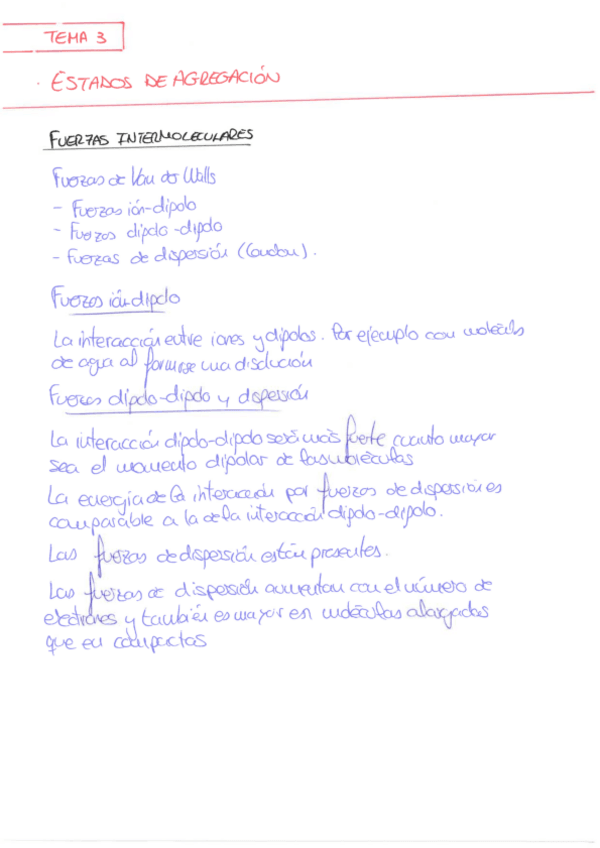 TEMA 3
· ESTADOS DE AGREGACIÓN
FUERZAS INTERMOLECULARES
Fuerzas de Van der Walls
- Fuerzas ión-dipolo
- Fuerzas dipolo-dipolo
- Fuerzas de dispersión (London).
Fuerzas ión-dipolo
La interacción entre iones y dipolos. Por ejemplo con moléculas
de agua al formarse una disolución
Fuerzas dipolo-dipolo y dispersión
La interacción dipolo-dipolo será más fuerte cuanto mayor
sea el momento dipolar de las moléculas
La energía de la interacción por fuerzas de dispersión es
comparable a la de la interacción dipolo-dipolo.
Las fuerzas de dispersión están presentes.
Las fuerzas de dispersión aumentan con el número de
electrones y también es mayor en moléculas alargadas
que en compactas